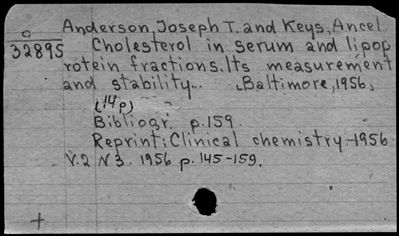 Anderson, Joseph T. and Keys, Ancel.
o
32895
Cholesterol in serum and lipop
rotein fractions. Its measurement
and stability... Baltimore, 1956.
(14p)
Bibliogr. p.159.
Reprint: Clinical chemistry-1956
V.2 N3. 1956 p. 145-159.
+